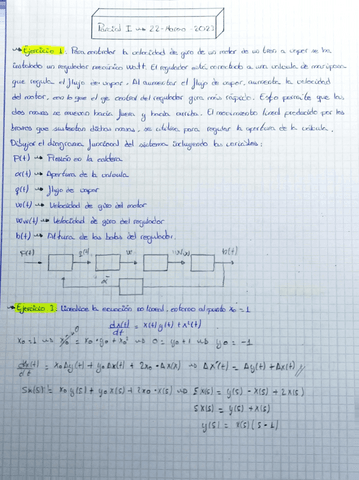 Parcial I → 22-Marzo 2023
→ Ejercicio 1: Para controlar la velocidad de giro de un motor de un tren a vapor se ha
instalado un regulador mecánico Watt. El regulador está conectado a una válvula de mariposa
que regula el flujo de vapor. Al aumentar el flujo de vapor, aumenta la velocidad
del motor, con lo que el eje central del regulador gira más rápido. Esto permite que las
dos masas se muevan hacia fuera y hacia arriba. El movimiento lineal producido por los
brazos que sustentan dichas masas, se utiliza para regular la apertura de la válvula.
Dibujar el diagrama funcional del sistema incluyendo las variables:
P(t) → Presión en la caldera
α(t) → Apertura de la válvula
q(t) → flujo de vapor
w(t) → Velocidad de giro del motor
→ Velocidad de giro del regulador
h(t) → Altura de las bolas del regulador.
P(t) q(t) w h(t)
α
→ Ejercicio 2: Linealice la ecuación no lineal, entorno al punto x₀ = 1
dx(t)/dt = x(t) y(t) + x²(t)
x₀ = 1 → x₀ = x₀ · y₀ + x₀² → 0 = y₀ + 1 → y₀ = -1
= x₀ Δy(t) + y₀ Δx(t) + 2x₀ · Δx(t) → Δx'(t) = Δy(t) + Δx(t)
= x₀ y(s) + y₀ x(s) + 2x₀ · x(s) → = y(s) - x(s) + 2x(s)
sx(s) = y(s) + x(s)
y(s) = x(s) (s - 1)